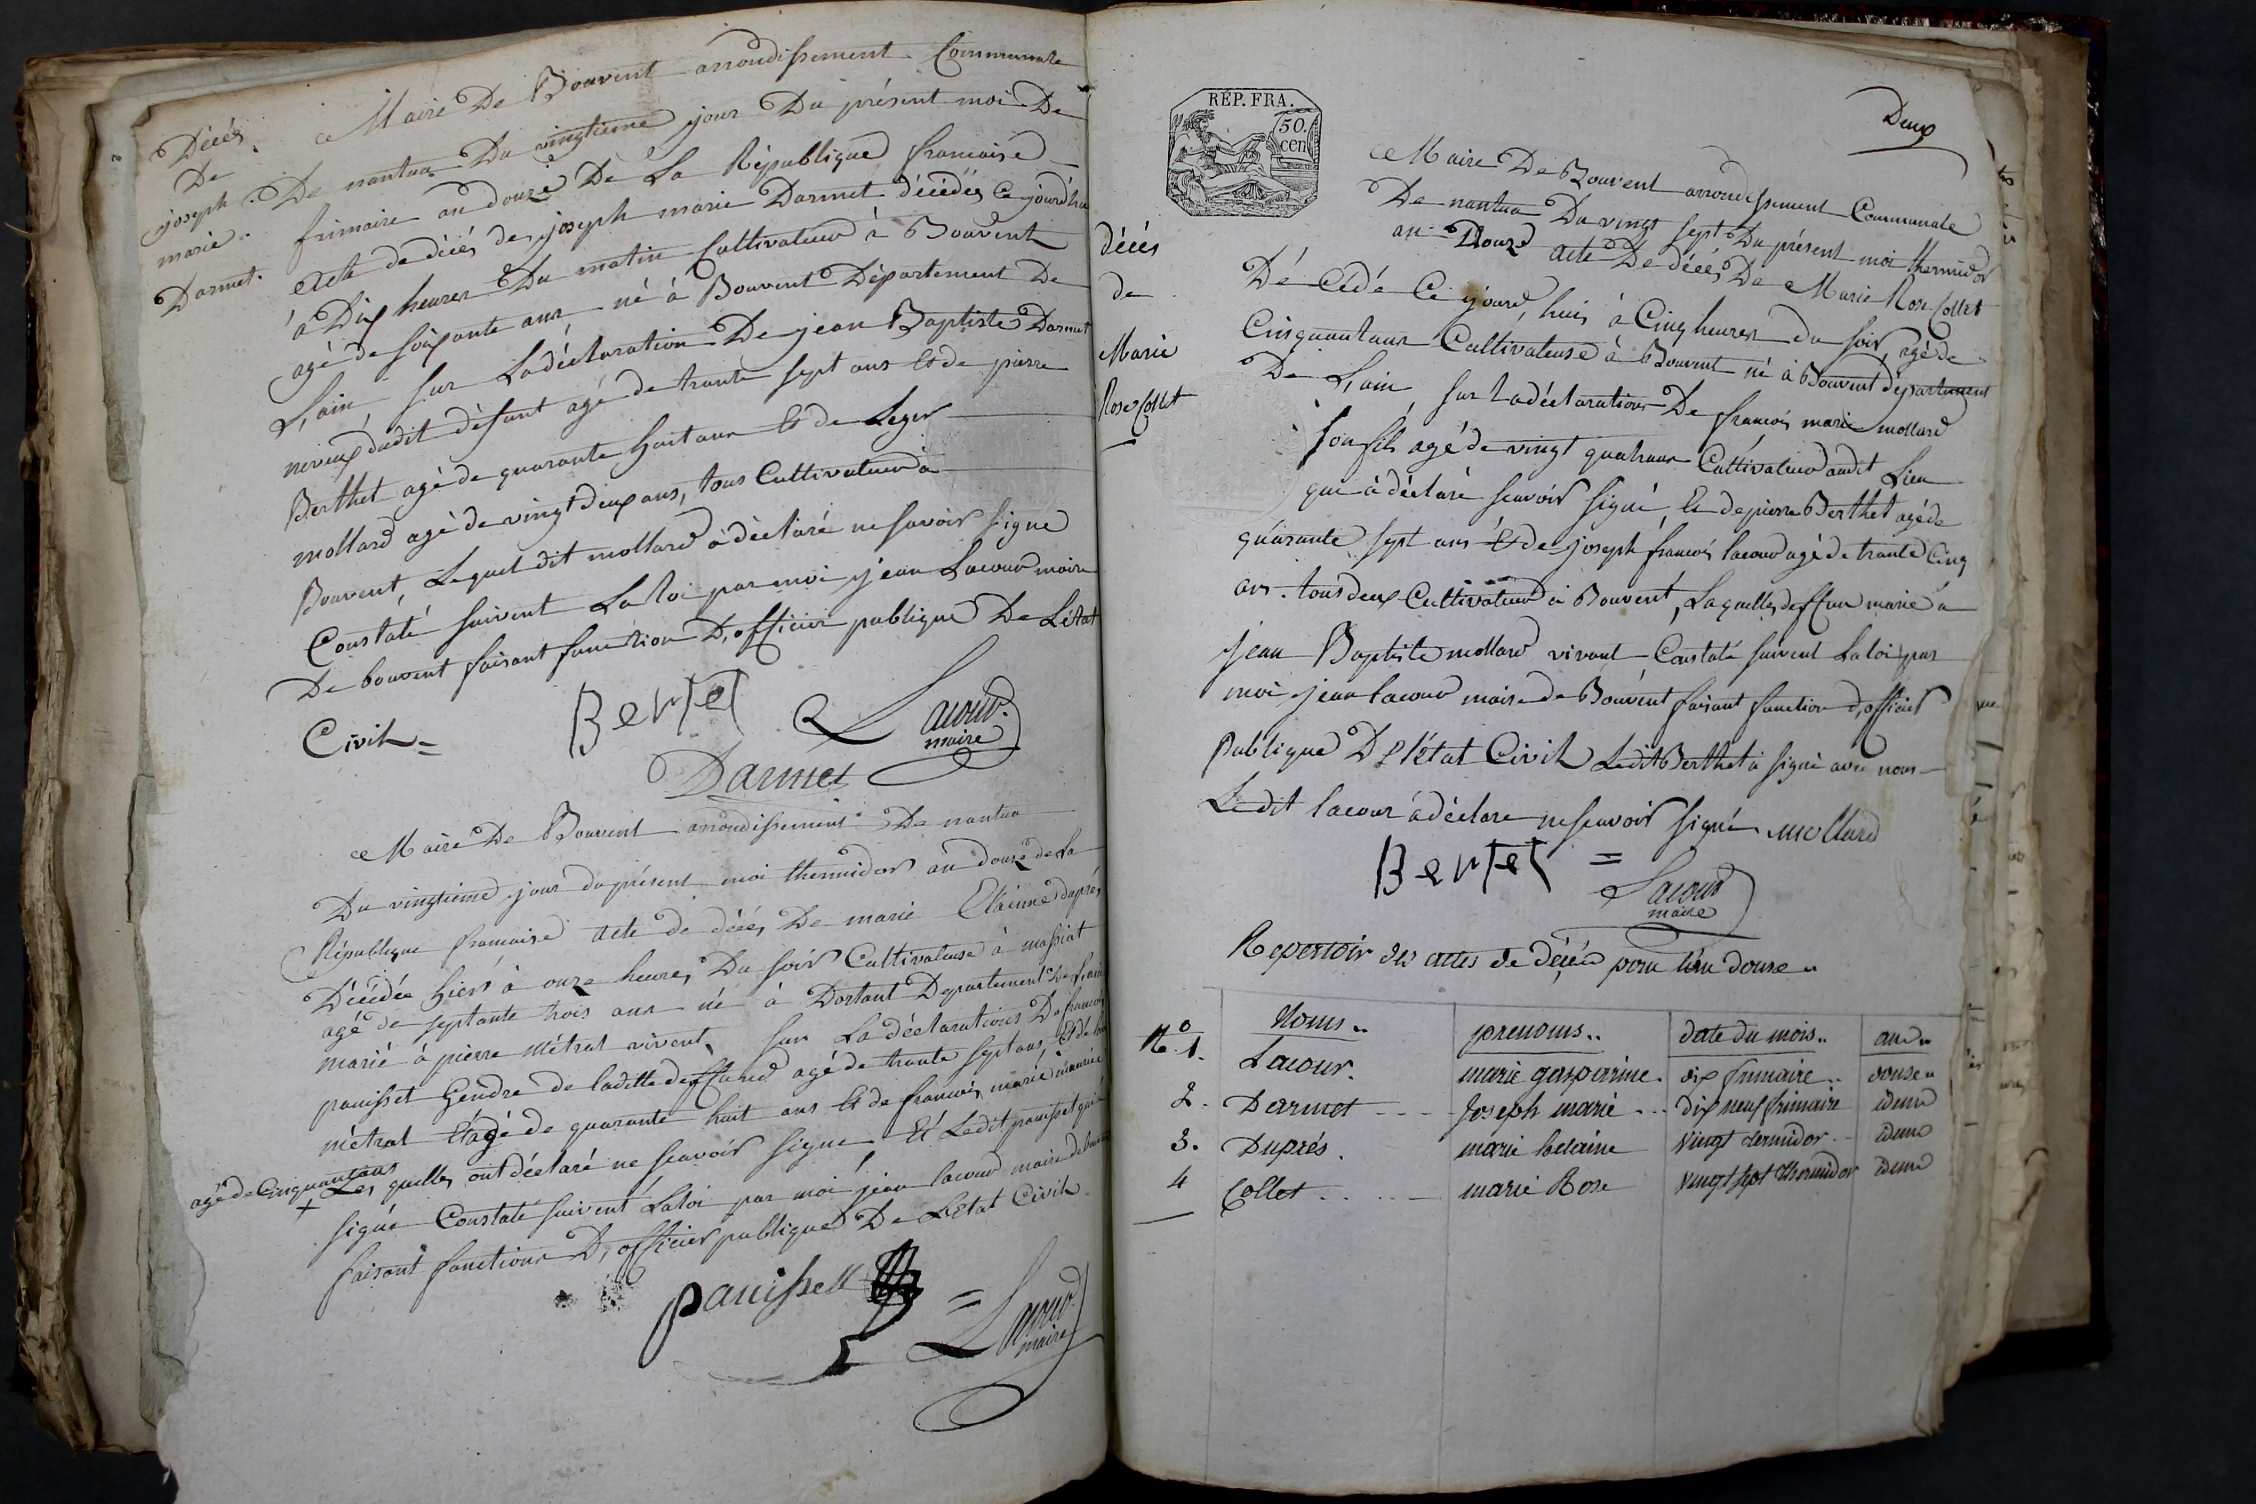 Décés
De
joseph
marie
Darmet.
Maire De Bouvent arrondissement Communale
De nantua Du vingtieme jour Du présent moi De
frimaire an douze De La République francaise
Acte de décés de joseph marie Darmet décédée Ce jourd'hui
à Dix heures Du matin Cultivateur à Bouvent
agé de soixante ans né à Bouvent Département De
L'ain sur La déclaration De jean Baptiste Darmet
neveux dudit défunt agé de trante sept ans Et de pierre
Berthet agé de quarante huit ans Et de Leger
mollard agé de vingt deux ans, tous Cultivateur à
Bouvent, Lequel dit mollard à déclaré ne savoir signé
Constaté suivent La loi par moi jean Lacour maire
De bouvent faisant function D'officier publique De L'état
Civil =
Bertet
Lacour
maire
Darmet
Maire De Bouvent arrondissement De nantua
Du vingtieme jour du présent moi thermidor an douze de La
République francaise acte de décés De marie Elainne duprés
Décédée hiers à onze heures Du soir Cultivateuse à massiat
agé de septante trois ans né à Dortant Departement De L'ain
marié à pierre métral vivent, sur La déclarations De francois
panisset Gendre de laditte deffund agé de trante sept ans Et de
métral Etagé de quarante huit ans Et de francois marié
agé de Cinquantans
+ Les quelles ont déclaré ne scavoir signe Et Ledit panisset qui
signé Constaté suivent La loi par moi jean lacour maire de
faisant functions D'officier publique De L'Etat Civil
panisset
= Lacour
maire
REP. FRA.
50.
cen
Deux
Maire De Bouvent arrondissement Communale
De nantua Du vingt sept Du présent moi thermidor
an Douze acte De décés De Marie Rose Collet
décés
de
Marie
Rose Collet
Dé cédé Ce jourd'hui à Cinq heures du soir, agé de
Cinquantans Cultivateuse à Bouvent né à Bouvent département
De L'ain, sur La déclarations De francois marie mollard
son fils agé de vingt quatrans Cultivateur audit Lieu
qui à déclaré scavoir signé, Et de pierre Berthet agé de
quarante sept ans Et de joseph francois lacour agé de trante Cinq
ans. tous deux Cultivateur à Bouvent, Laquelle deffun marié à
jean Baptiste mollard vivant Constaté suivent La loi par
moi jean lacour maire de Bouvent faisant function d'officier
Publique De l'état Civil Ledit Berthet à signé avec nous
Le dit lacour à déclare ne scavoir signé mollard
Bertet =
Lacour
maire
Repertoir des actes de décéd pour l'an douse
No. Noms.. prenoms.. date du mois.. an..
1. Lacour. marie gasparine. dix frimaire.. douse
2. Darmet Joseph marie dix neuf frimaire idem
3. Duprés. marie helaine Vingt termidor idem
4 Collet marie Rose vingt sept thermidor idem